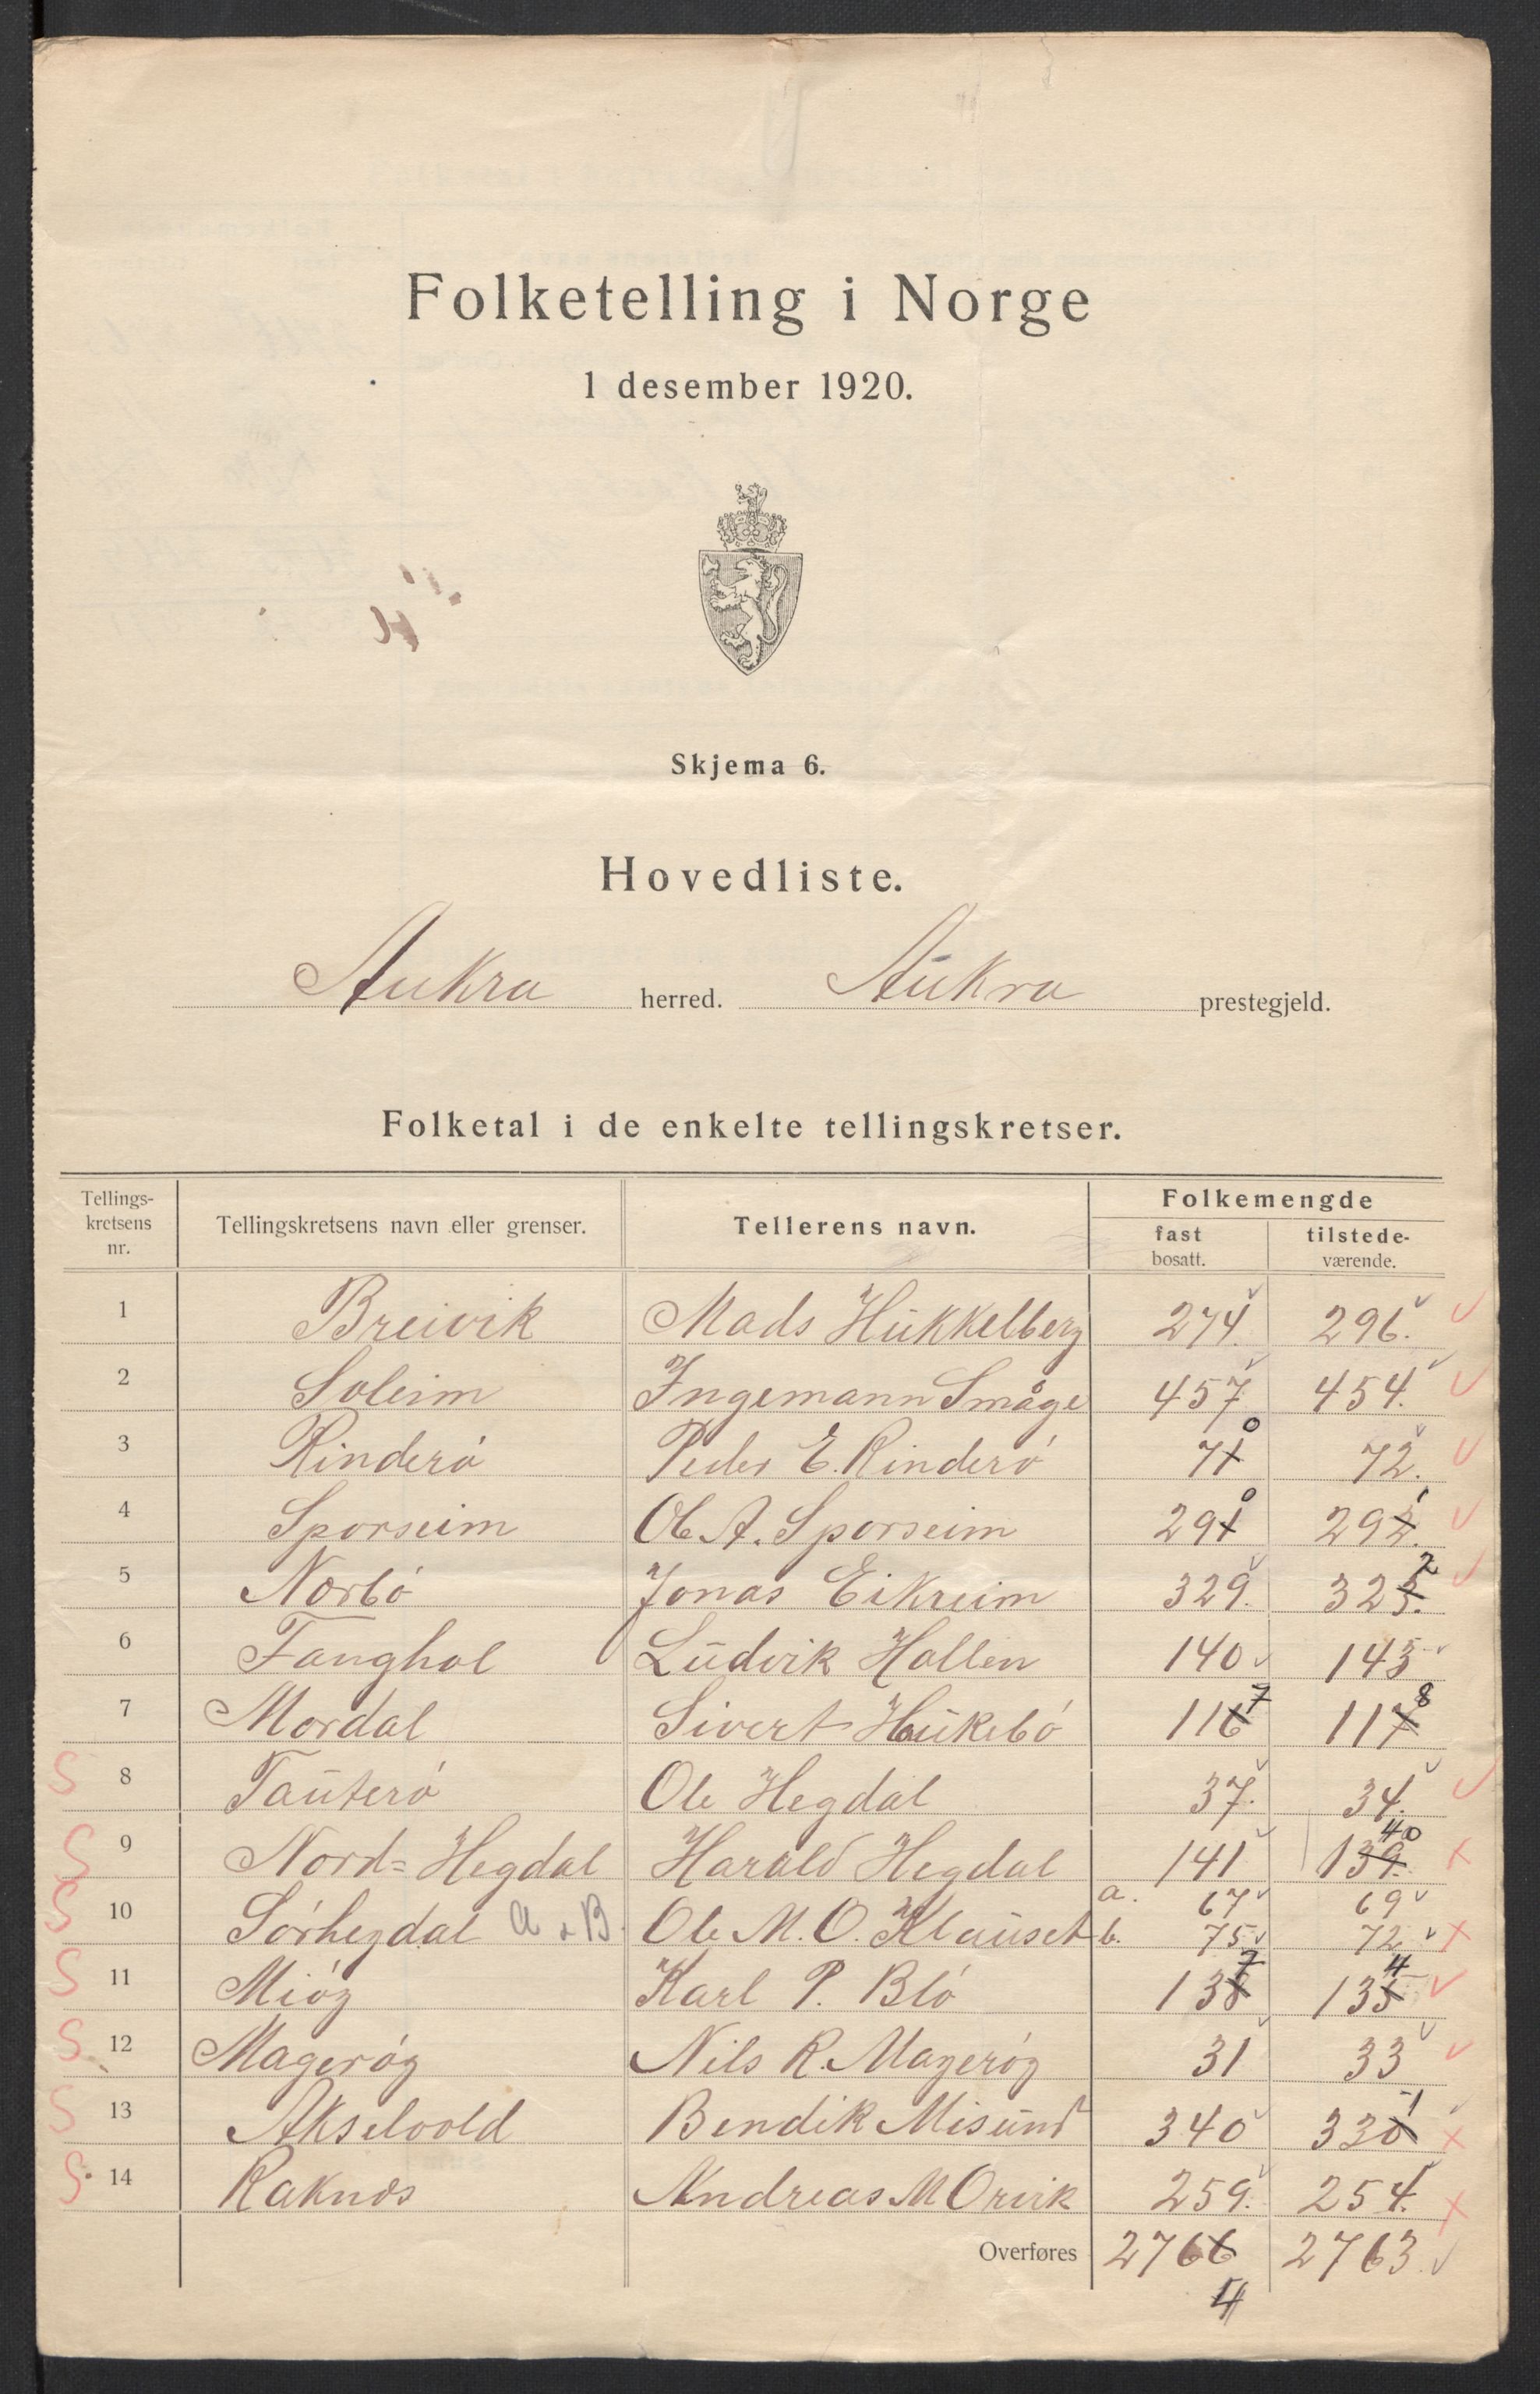 Folketelling i Norge
1 desember 1920.
Skjema 6.
Hovedliste.
Aukra herred. Aukra prestegjeld.
Folketal i de enkelte tellingskretser.
Tellings-kretsens nr. Tellingskretsens navn eller grenser. Tellerens navn. Folkemengde
fast bosatt. tilstede-værende.
1 Breivik Mads Hukkelberg 274. 296.
2 Soleim Ingemann Småge 457 454.
3 Rinderö Peder E. Rinderö 71 0 72.
4 Sporseim Ole A. Sporseim 291 0 292. 1
5 Norbö Jonas Eikreim 329. 323. 2
6 Tanghol Ludvik Hollen 140 143
7 Mordal Sivert Hukebö 116 7 117 8
S 8 Tauterö Ole Hegdal 37. 34.
S 9 Nord=Hegdal Harald Hegdal 141 139. 40
S 10 Sörhegdal a + B. Ole M. O. Klauset a. 67 69
b. 75 72
S 11 Miög Karl P. Blö 138 7 135 4
S 12 Mageröy Nils R. Mageröy 31 33
S 13 Akselvold Bendik Misund 340 330 1
S 14 Raknes Andreas M Orvik 259. 254.
Overføres 2766 2763.
4